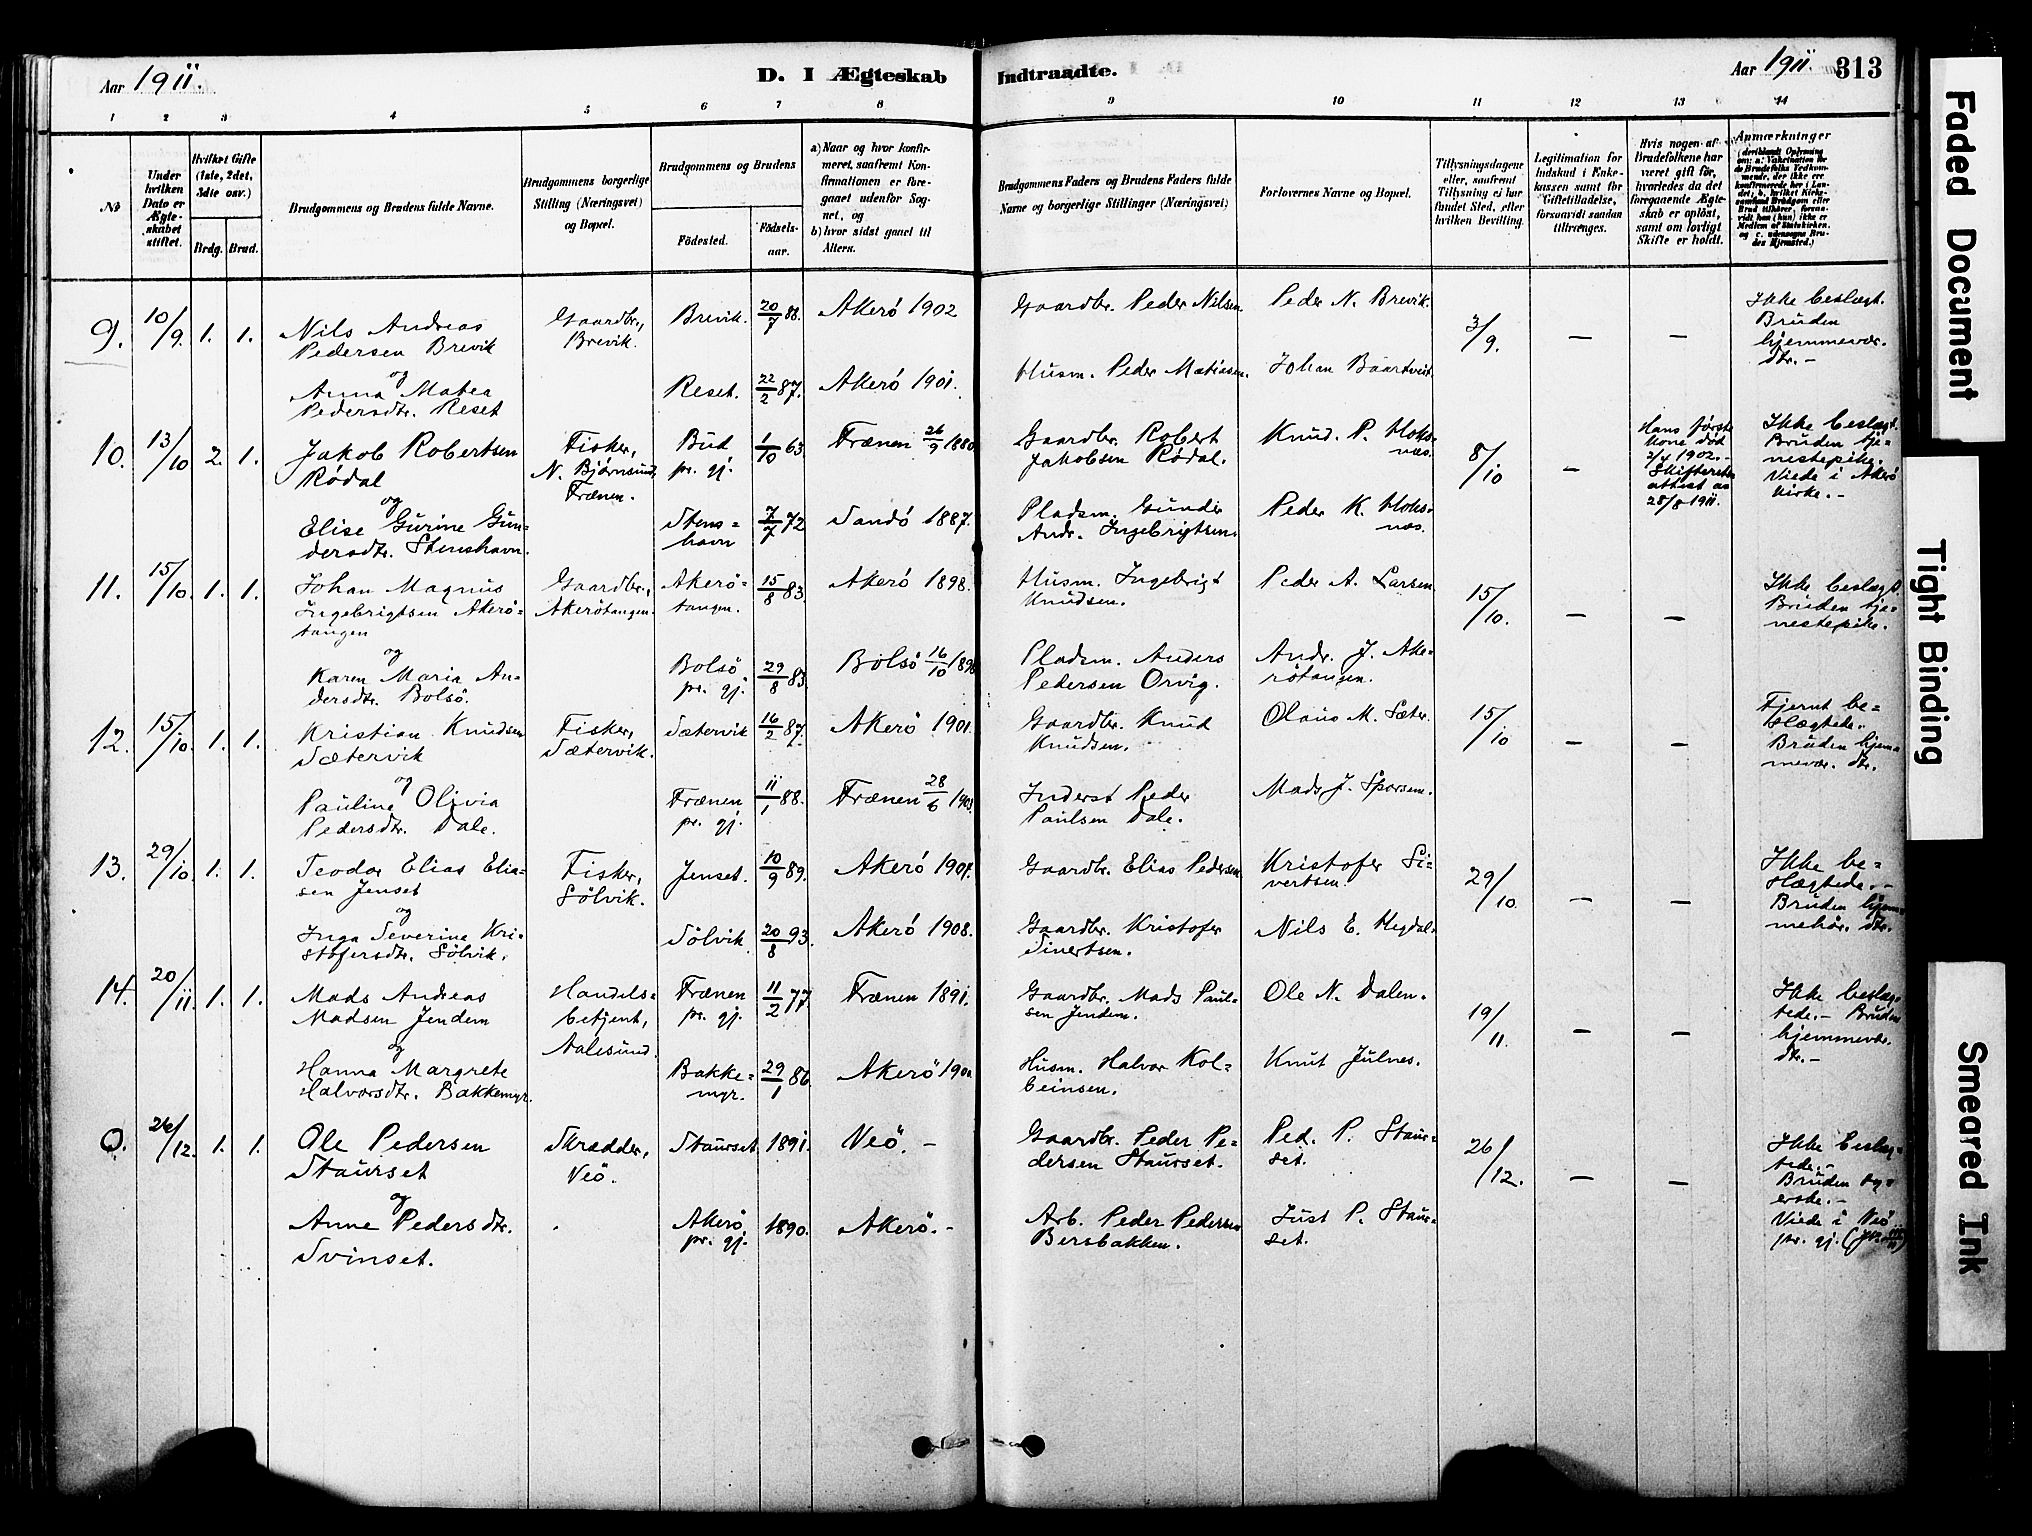 Aar 1911.
D. I Ægteskab Indtraadte.
Aar 1911. 313
1 2 3 4 5 6 7 8 9 10 11 12 13 14
No
Under hvilken Dato er Ægteskabet stiftet.
Hvilket Gifte (1ste, 2det, 3die osv.)
Brdg. Brud.
Brudgommens og Brudens fulde Navne.
Brudgommens borgerlige Stilling (Næringsvei) og Bopæl.
Brudgommens og Brudens
Födested.
Födsels-aar.
a) Naar og hvor konfirmeret, saafremt Konfirmationen er foregaaet udenfor Sognet, og
b) hvor sidst gaaet til Alters.
Brudgommens Faders og Brudens Faders fulde Navne og borgerlige Stillinger (Næringsvei)
Forlovernes Navne og Bopæl.
Tillysningsdagene eller, saafremt Tillysning ei har fundet Sted, efter hvilken Bevilling.
Legitimation for Indskud i Enkekassen samt for Giftetilladelse, forsaavidt saadan tiltrænges.
Hvis nogen af Brudefolkene har været gift før, hvorledes da det foregaaende Ægteskab er opløst, samt om lovligt Skifte er holdt.
Anmærkninger
9. 10/9. 1. 1. Nils Andreas Pedersen Brevik
Gaardbr., Brevik.
Brevik. 20/7 88. Akerö 1902
Gaardbr. Peder Nilsen.
Peder N. Brevik.
3/9. — —
Ikke beslægt. Bruden hjemmevær. dtr.-
og
Anna Matea Pedersdtr. Reset
Reset. 22/2 87. Akerö 1901.
Husm. Peder Matiasen.
Johan
10. 13/10 2. 1. Jakob Robertsen Rödal
Fisker, N. Bjørnsund, Frænen.
Bud pr. gj. 1/10 63. Frænen 26/9 1880
Gaardbr. Robert Jakobsen Rödal.
Knud. P. Hoksnæs.
8/10 —
Hans første kone død 2/4 1902.- Skifteretsattest av 28/8 1911.
Ikke beslægt. Bruden tjenestepike. Viede i Akerö kirke.-
og
Elise Gurine Gundersdtr. Stenshavn.
Stenshavn 7/7 72 Sandö 1887.
Pladsm. Gunder Andr. Ingebrigtsen.
Peder K. Hoksnæs.
11. 15/10. 1. 1. Johan Magnus Ingebrigtsen Akerötangen
Gaardbr., Akerötangen.
Akerötangen. 15/8 83. Akerö 1898.
Husm. Ingebrigt Knudsen.
Peder A. Larsen
15/10. — —
Ikke beslægt. Bruden tjenestepike.
og
Karen Maria Andersdtr. Bolsö.
Bolsö pr. gj. 29/8 83. Bolsö 16/10 1898
Pladsm. Anders Pedersen Orvig.
Andr. J. Akerötangen.
12. 15/10. 1. 1. Kristian Knudsen Sætervik
Fisker, Sætervik.
Sætervik 16/2 87. Akerö 1901.
Gaardbr. Knud Knudsen.
Olaus M. Sæter.
15/10 — —
Fjernt beslægtede. Bruden hjemmevær. dtr.
og
Pauline Olivia Pedersdtr. Dale.
Frænen pr. gj. 11/1 88. Frænen 28/6 1903.
Inderst Peder Paulsen Dale.
Mads J. Sporsem.
13. 29/10. 1. 1. Teodor Elias Eliasen Jenset
Fisker, Sölvik.
Jenset. 10/9 89. Akerö 1904.
Gaardbr. Elias Pedersen
Kristofer Sivertsen.
29/10. — —
Ikke beslægtede.- Bruden hjemmehør. dtr.
og
Inga Severine Kristofersdtr. Sölvik.
Sölvik 20/8 93. Akerö 1908.
Gaardbr. Kristofer Sivertsen.
Nils E. Hegdal.
14. 20/11. 1. 1. Mads Andreas Madsen Jendem
Handelsbetjent, Aalesund.
Frænen pr. gj. 11/2 77 Frænen 1891.
Gaardbr. Mads Paulsen Jendem.
Ole N. Dalen.
19/11. — —
Ikke beslægtede.- Bruden hjemmevær. dtr.-
og
Hanna Margrete Halvorsdtr. Bakkemyr.
Bakkemyr. 29/1 86. Akerö
Husm. Halvor Kolbeinsen.
Knut Julnes.
0. 26/12. 1. 1. Ole Pedersen Staurset
Skrædder, Veö.
Staurset 1891. Veö.-
Gaardbr. Peder Pedersen Staurset.
Ped. P. Staurset.
26/12. — —
Ikke beslægtede.- Bruden syerske.- Viede i Veö pr. gj.
og
Anne Pedersdtr. Svinset.
Akerö pr. gj. 1890. Akerö.-
Arb. Peder Pedersen Bersbakken.
Just P. Staurset.
Faded Document
Tight Binding
Smeared Ink